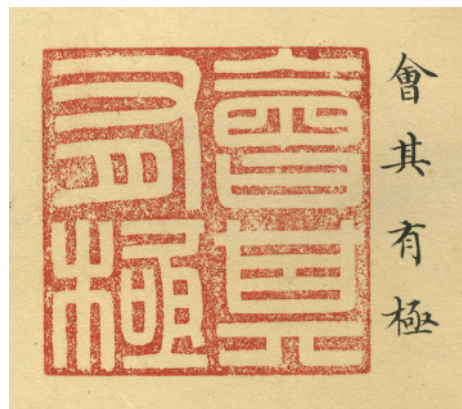 會其有極
會其
有極